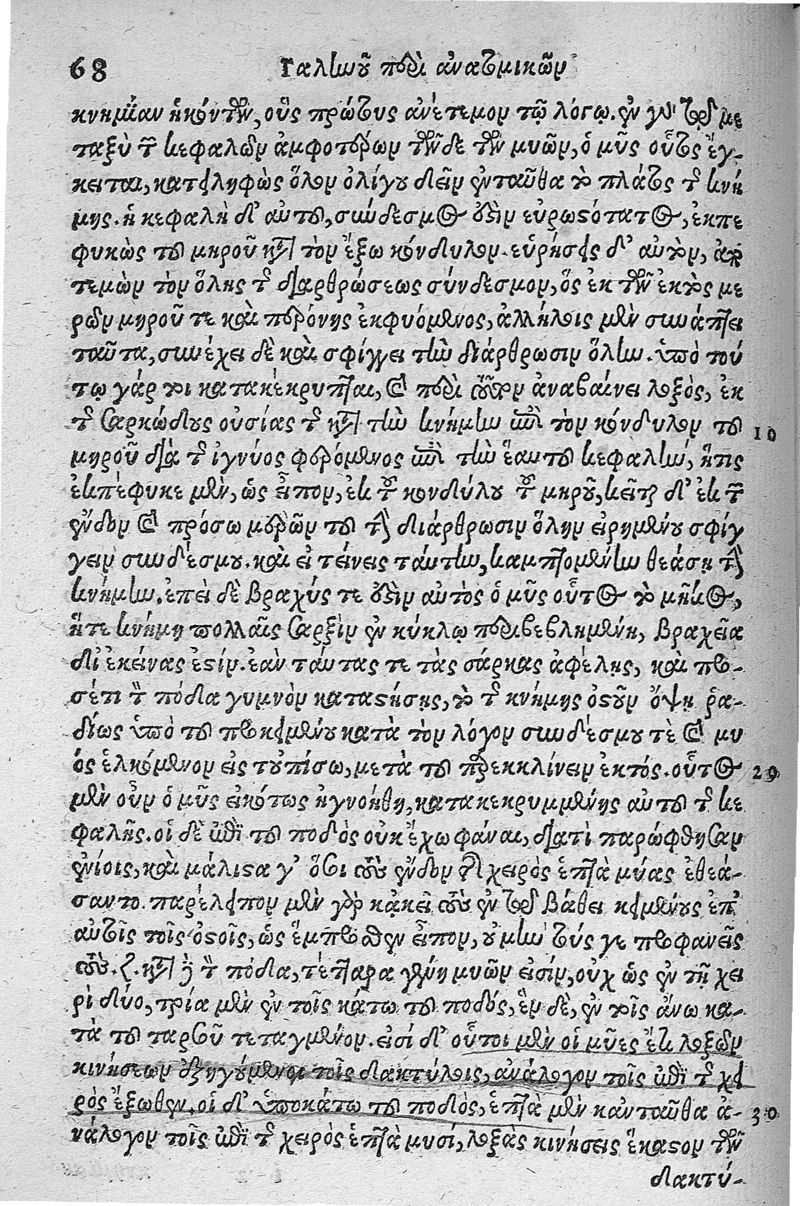 68 Γαληνοῦ περὶ ἀνατομικῶν
κνημίαν ἡκόντων, οὓς πρώτους ἀνέτεμον τῷ λόγῳ. ἐν γοῦν τῷ με
ταξὺ τῶν κεφαλῶν ἀμφοτέρων τῶνδε τῶν μυῶν, ὁ μῦς οὗτος ἔγ-
κειται, κατειληφὼς ὅλον ὀλίγου δεῖν ἐνταῦθα τὸ πλάτος τῆς κνή
μης. ἡ κεφαλὴ δ' αὐτοῦ, σύνδεσμος ἐστὶν εὐρωστότατος, ἐκπε
φυκὼς τοῦ μηροῦ κατὰ τὸν ἔξω κόνδυλον. εὑρήσεις δ' αὐτὸν, ἀπο
τεμὼν τὸν ὅλης τῆς διαρθρώσεως σύνδεσμον, ὃς ἐκ τῶν ἐκτὸς με
ρῶν μηροῦ τε καὶ περόνης ἐκφυόμενος, ἀλλήλοις μὲν συνάπτει
ταῦτα, συνέχει δὲ καὶ σφίγγει τὴν διάρθρωσιν ὅλην. ὑπὸ τού
τῳ γάρ τοι κατακέκρυπται, καὶ περὶ τοῦτον ἀναβαίνει λοξὸς, ἐκ
τῆς σαρκώδους οὐσίας τῆς κατὰ τὴν κνήμην ἐπὶ τὸν κόνδυλον τοῦ 10
μηροῦ διὰ τῆς ἰγνύος φερόμενος ἐπὶ τὴν ἑαυτοῦ κεφαλὴν, ἥτις
ἐκπέφυκε μὲν, ὡς εἶπον, ἐκ τοῦ κονδύλου τοῦ μηροῦ, κεῖται δ' ἐκ τῶν
ἔνδον καὶ πρόσω μερῶν τοῦ τὴν διάρθρωσιν ὅλην εἰρημένου σφίγ
γειν συνδέσμου. καὶ εἰ τείνεις ταύτην, καμπτομένην θεάσῃ τὴν
κνήμην. ἐπεὶ δὲ βραχύς τε ἐστὶν αὐτὸς ὁ μῦς οὗτος τὸ μῆκος,
ἥτε κνήμη πολλαῖς σαρξὶν ἐν κύκλῳ περιβεβλημένη, βραχεῖα
δι' ἐκείνας ἐστίν. ἐὰν ταύτας τε τὰς σάρκας ἀφέλῃς, καὶ προ-
σέτι τὸν πόδα γυμνὸν καταστήσῃς, τὸ τῆς κνήμης ὀστοῦν ὄψῃ ῥα-
δίως ὑπὸ τοῦ προκειμένου κατὰ τὸν λόγον συνδέσμου τὲ καὶ μυ
ὸς ἑλκόμενον εἰς τοὐπίσω, μετὰ τοῦ παρεκκλίνειν ἐκτός. οὗτος 20
μὲν οὖν ὁ μῦς εἰκότως ἠγνοήθη, κατακεκρυμμένης αὐτοῦ τῆς κε
φαλῆς. οἱ δὲ ἐπὶ τοῦ ποδὸς οὐκ ἔχω φάναι, διατὶ παρώφθησαν
ἐνίοις, καὶ μάλιστα γ' ὅσοι τοὺς ἔνδον τῆς χειρὸς ἑπτὰ μύας ἐθεά-
σαντο. παρέλειπον μὲν γὰρ κἀκεῖ τοὺς ἐν τῷ βάθει κειμένους ἐπ'
αὐτοῖς τοῖς ὀστοῖς, ὡς ἔμπροσθεν εἶπον, οὐ μὴν τούς γε προφανεῖς
τοὺς .ζ. κατὰ δὲ τὸν πόδα, τέτταρα γένη μυῶν εἰσίν, οὐχ ὡς ἐν τῇ χει
ρὶ δύο, τρία μὲν ἐν τοῖς κάτω τοῦ ποδός, ἓν δὲ, ἐν τοῖς ἄνω κα-
τὰ τοῦ ταρσοῦ τεταγμένον. εἰσὶ δ' οὗτοι μὲν οἱ μῦες ἐκ λοξῶν
κινήσεων ἐξηγούμενοι τοῖς δακτύλοις, ἀνάλογον τοῖς ἐπὶ τῆς χει
ρὸς ἔξωθεν. οἱ δ' ὑποκάτω τοῦ ποδὸς, ἑπτὰ μὲν κἀνταῦθα ἀ- 30
νάλογον τοῖς ἐπὶ τῆς χειρὸς ἑπτὰ μυσὶ, λοξὰς κινήσεις ἕκαστον τῶν
δακτύ-